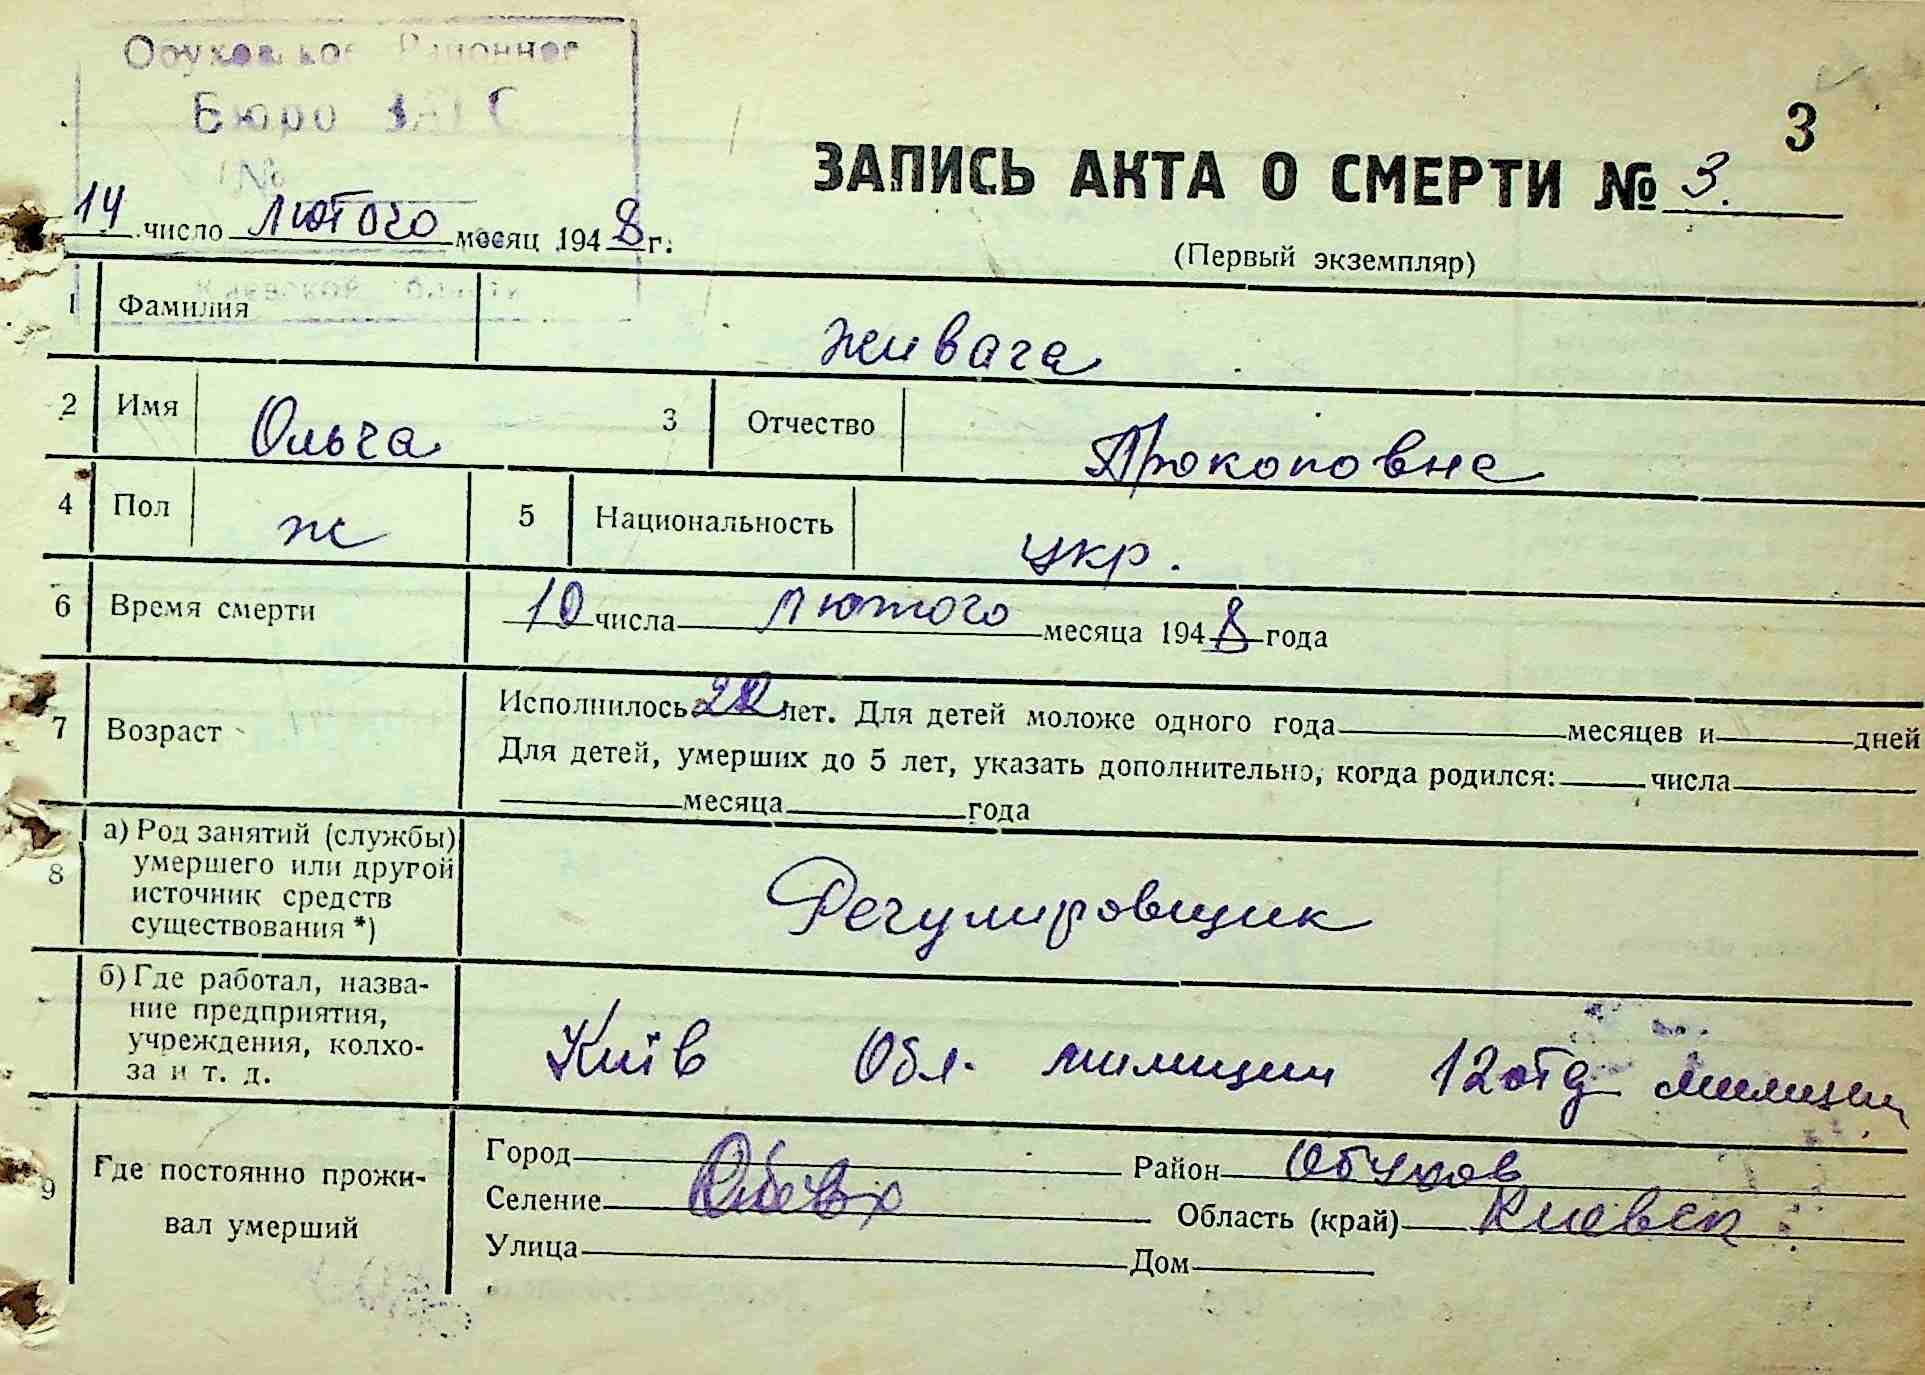 Обуховское Районное
Бюро ЗАГС
№
Киевской области
3
ЗАПИСЬ АКТА О СМЕРТИ № 3.
14 число лютого месяц 1948 г.
(Первый экземпляр)
1 Фамилия Живага
2 Имя Ольга 3 Отчество Прокоповна
4 Пол ж 5 Национальность укр.
6 Время смерти 10 числа лютого месяца 1948 года
7 Возраст Исполнилось 22 лет. Для детей моложе одного года месяцев и дней
Для детей, умерших до 5 лет, указать дополнительно, когда родился: числа
месяца года
8 а) Род занятий (службы)
умершего или другой
источник средств
существования *)
Регулировщик
б) Где работал, назва-
ние предприятия,
учреждения, колхо-
за и т. д.
Київ Обл. милиции 12 отд милиции
9 Где постоянно прожи-
вал умерший
Город Район Обухов
Селение Область (край) Киевск
Улица Дом